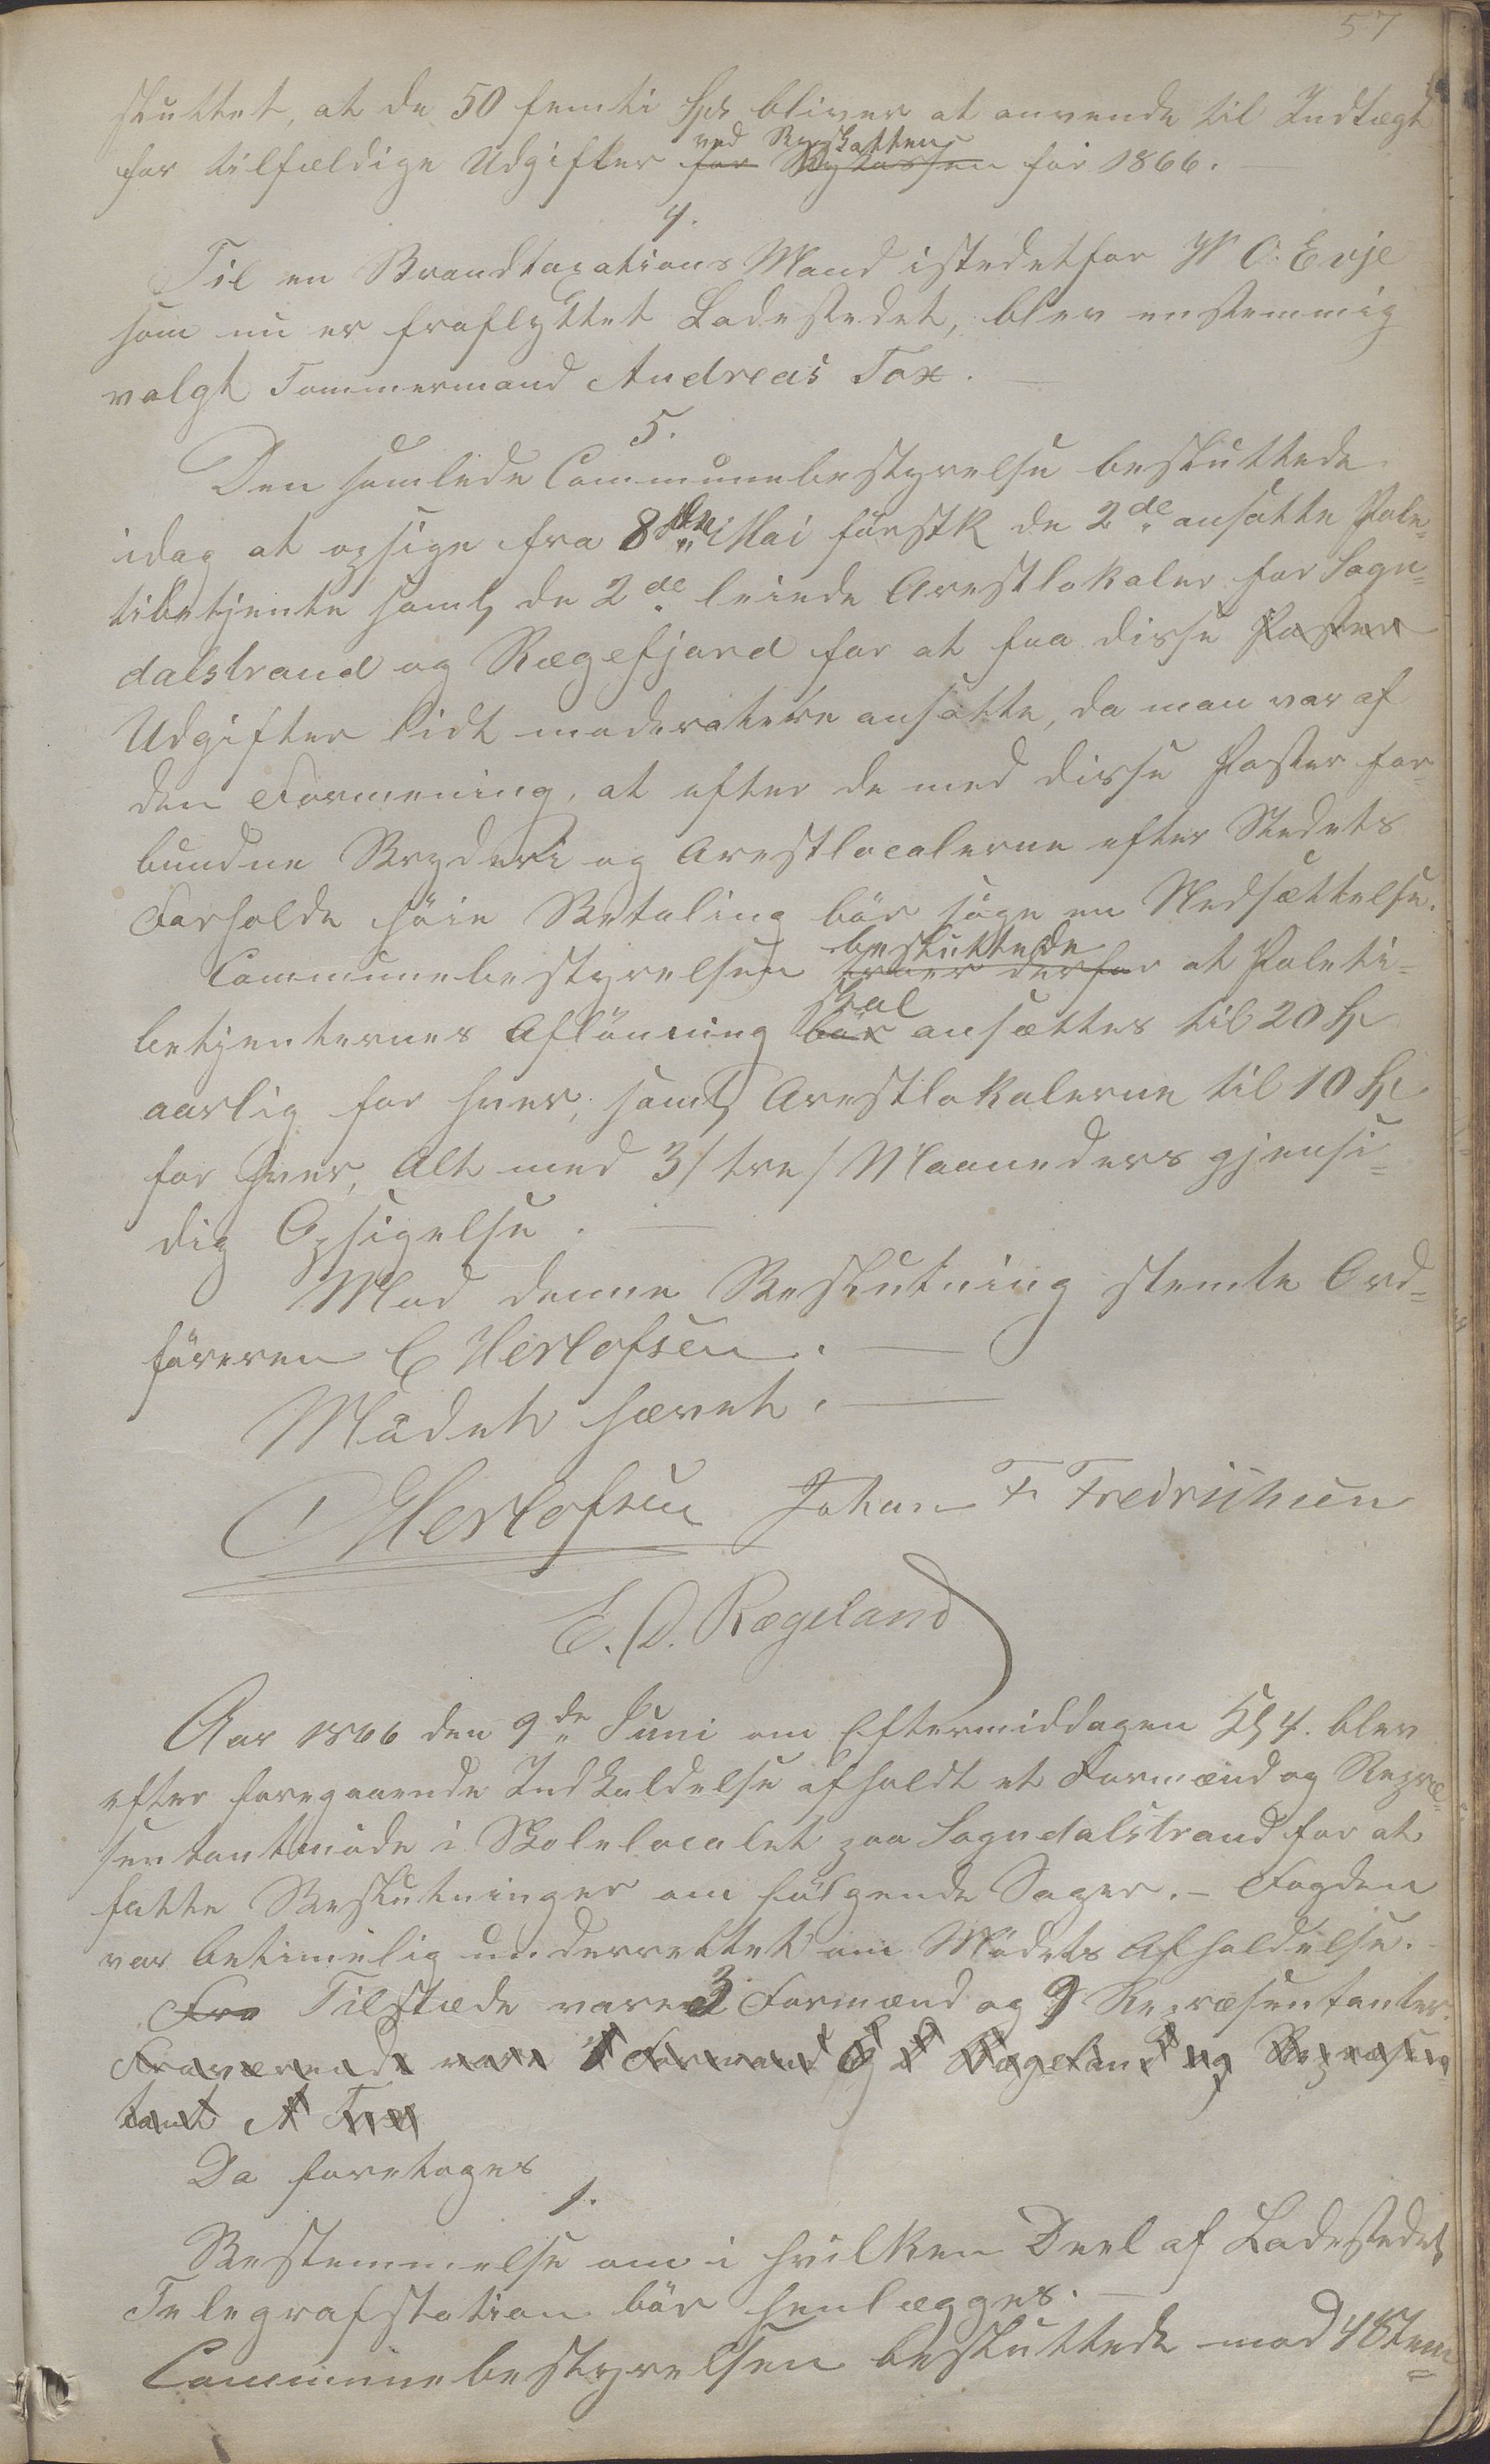 57
sluttet, at de 50 femti Spd bliver at anvende til Indtægt
for tilfældige Udgifter for Bykassen for 1866.
ved Byskatten
4.
Til en Brandtaxations Mand istedetfor W O. Evje
som nu er fraflyttet Ladestedet, blev enstemmig
valgt Tømmermand Andreas Tox.
5.
Den samlede Communebestyrelse besluttede
idag at opsige fra 8de Mai førstk de 2de ansatte Pole-
tibetjente samt de 2de leiede Arestlokaler for Sogn-
dalstrand og Rægefjord for at faa disse Poster
Udgifter lidt moderatere ansatte, da man var af
den Formening, at efter de med disse Poster for-
bundne Bryderi og Arestlocalerne efter Stedets
Forholde høie Betaling bør søge en Nedsættelse.
Communebestyrelsen besluttede at Poleti-
skal
betjenternes Aflønning bør ansættes til 20 Sp
aarlig for hver, samt Arestlokalerne til 10 Sp
for hver, Alt med 3/tre/Maaneders gjensi-
dig Opsigelse.
Mod denne Beslutning stemte Ord-
føreren C Herlofsen.
Mødet hævet.
C Herlofsen Johan F Fredrichsen
E. O. Rægeland
Aar 1866 den 9de Juni om Eftermiddagen Kl 4. blev
efter foregaaende Indkaldelse afholdt et Formænd og Repræ-
sentantmøde i Skolelocalet paa Sogndalstrand for at
fatte Beslutninger om følgende Sager. - Fogden
var betimelig underrettet om Mødets Afholdelse.
Fra Tilstæde vare 3 Formænd og 9 Repræsentanter.
Fraværende vare 1 Formand Rægeland og Repræsen-
tant A
Da foretages
1.
Bestemmelse om i hvilken Deel af Ladestedet
Telegrafstation bør henlægges.
Communebestyrelsen besluttede mod 4 Stem-